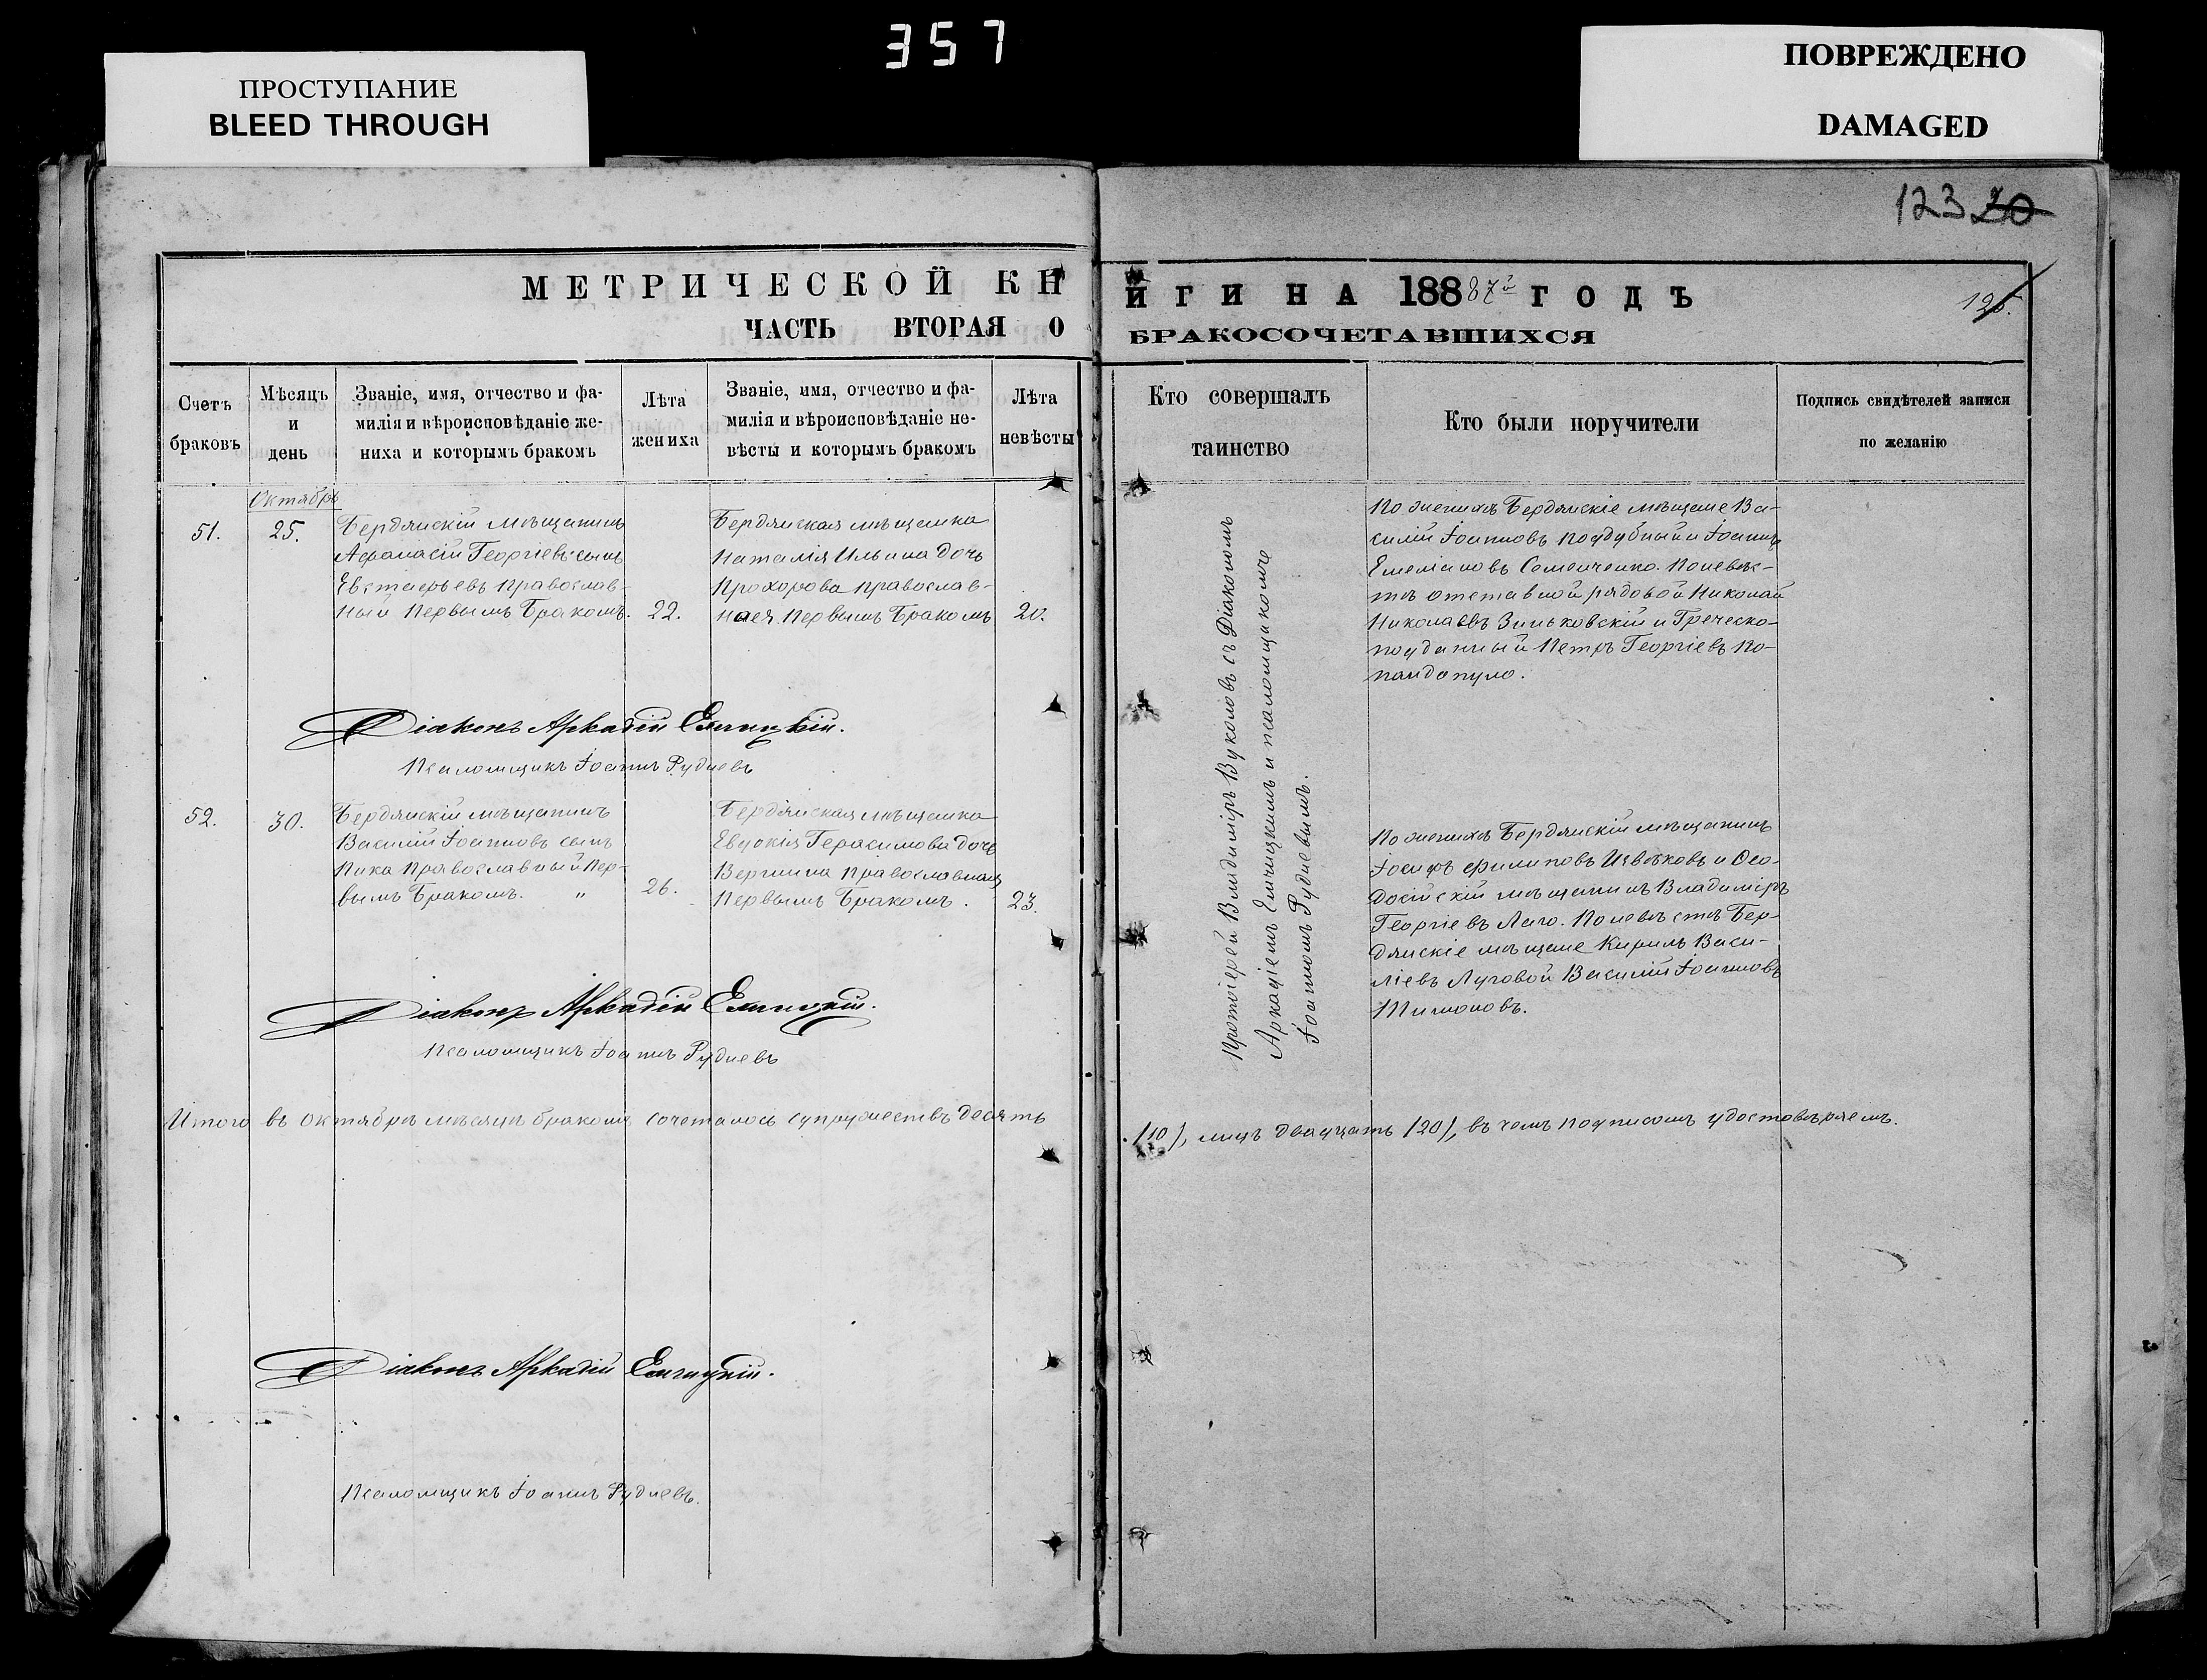 357
ПРОСТУПАНИЕ
BLEED THROUGH
ПОВРЕЖДЕНО
DAMAGED
123 20
МЕТРИЧЕСКОЙ КН
ИГИ НА 188 87й ГОДЪ
125.
ЧАСТЬ ВТОРАЯ О
БРАКОСОЧЕТАВШИХСЯ
Счетъ
браковъ
Мѣсяцъ
и
день
Званіе, имя, отчество и фа-
милія и вѣроисповѣданіе же-
ниха и которымъ бракомъ
Лѣта
жениха
Званіе, имя, отчество и фа-
милія и вѣроисповѣданіе не-
вѣсты и которымъ бракомъ
Лѣта
невѣсты
Кто совершалъ
таинство
Кто были поручители
Подпись свидѣтелей записи
по желанію
Октябрь
51.
25.
Бердянскій мѣщанинъ
Афанасій Георгіевъ сынъ
Евстафьевъ православ-
ный первымъ бракомъ.
22.
Бердянская мѣщанка
Наталія Ильина дочь
Прохорова православ-
ная первымъ бракомъ
20.
Протоіерей Владиміръ Вуколовъ съ Діакономъ
Аркадіемъ Елчицкимъ и псаломщикомъ
Іоанномъ Рудневымъ.
По женихѣ Бердянскіе мѣщане Ва-
силій Іоанновъ Поддубный и Іоаннъ
Емеліановъ Семенченко. По невѣс-
тѣ отставной рядовой Николай
Николаевъ Зиньковскій и Греческо-
подданный Петръ Георгіевъ По-
пандопуло.
Діаконъ Аркадій Елчицкій.
Псаломщикъ Іоаннъ Рудневъ
52.
30.
Бердянскій мѣщанинъ
Василій Іоанновъ сынъ
Пика православный пер-
вымъ бракомъ. "
26.
Бердянская мѣщанка
Евдокія Герасимова дочь
Вершина православная
первымъ бракомъ.
23.
По женихѣ Бердянскій мѣщанинъ
Іосифъ Филиповъ Цвѣтковъ и Ѳео-
досійскій мѣщанинъ Владиміръ
Георгіевъ Лаго. По невѣстѣ Бер-
дянскіе мѣщане Кирилъ Васи-
ліевъ Луговой Василій Іоанновъ
Тимоновъ.
Діаконъ Аркадій Елчицкій.
Псаломщикъ Іоаннъ Рудневъ
Итого въ октябрѣ мѣсяцѣ бракомъ сочеталось супружествъ десять
(10), лицъ двадцать (20), въ чемъ подписомъ удостовѣряемъ.
Діаконъ Аркадій Елчицкій.
Псаломщикъ Іоаннъ Рудневъ.